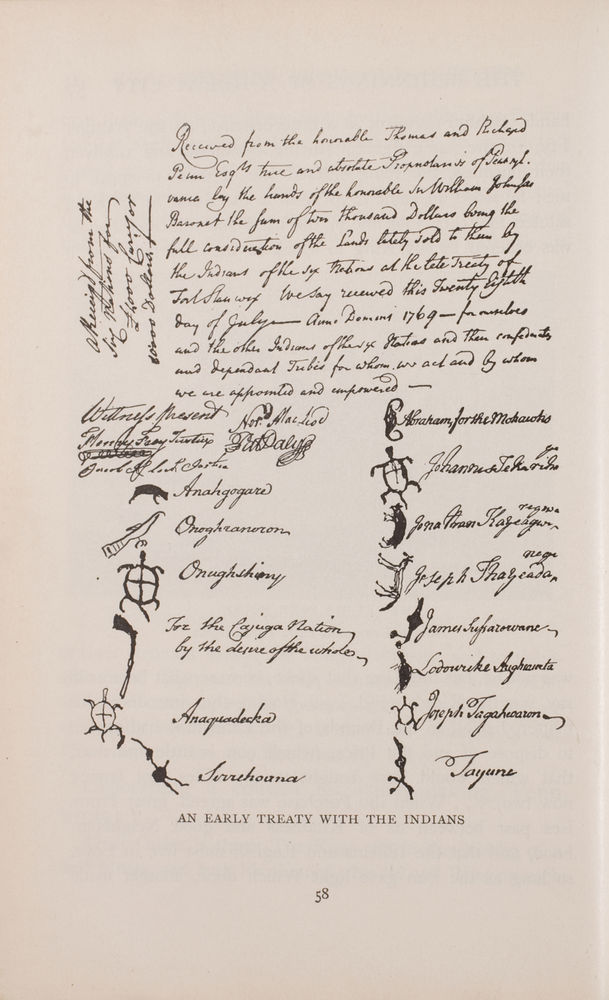 Received from the honorable Thomas and Richard
Penn Esqrs true and absolute Proprietaries of Pensyl-
vania by the hands of the honorable Sr William Johnson
Baronet the sum of ten thousand Dollars being the
full consideration of the Lands lately sold to them by
the Indians of the six Nations at the late Treaty of
Fort Stanwix We say received this Twenty Eighth
day of July Anno Domini 1769 - for ourselves
and the other Indians of the six Nations and their confederates
and dependant Tribes for whom we act and by whom
we are appointed and empowered
A Receipt from the
Six Nations for
10000 Dollars
Witness Present
Nord MacLeod
Anahgogare
Onoghranoron
Onughshiny
For the Cajuga Nation
by the desire of the whole
Anaquadecka
Sirrehoana
Abraham, for the Mohawks
Johannes
Jonathan
Joseph
James
Lodowicke
Joseph Tagahwaron
Tayune
AN EARLY TREATY WITH THE INDIANS
58